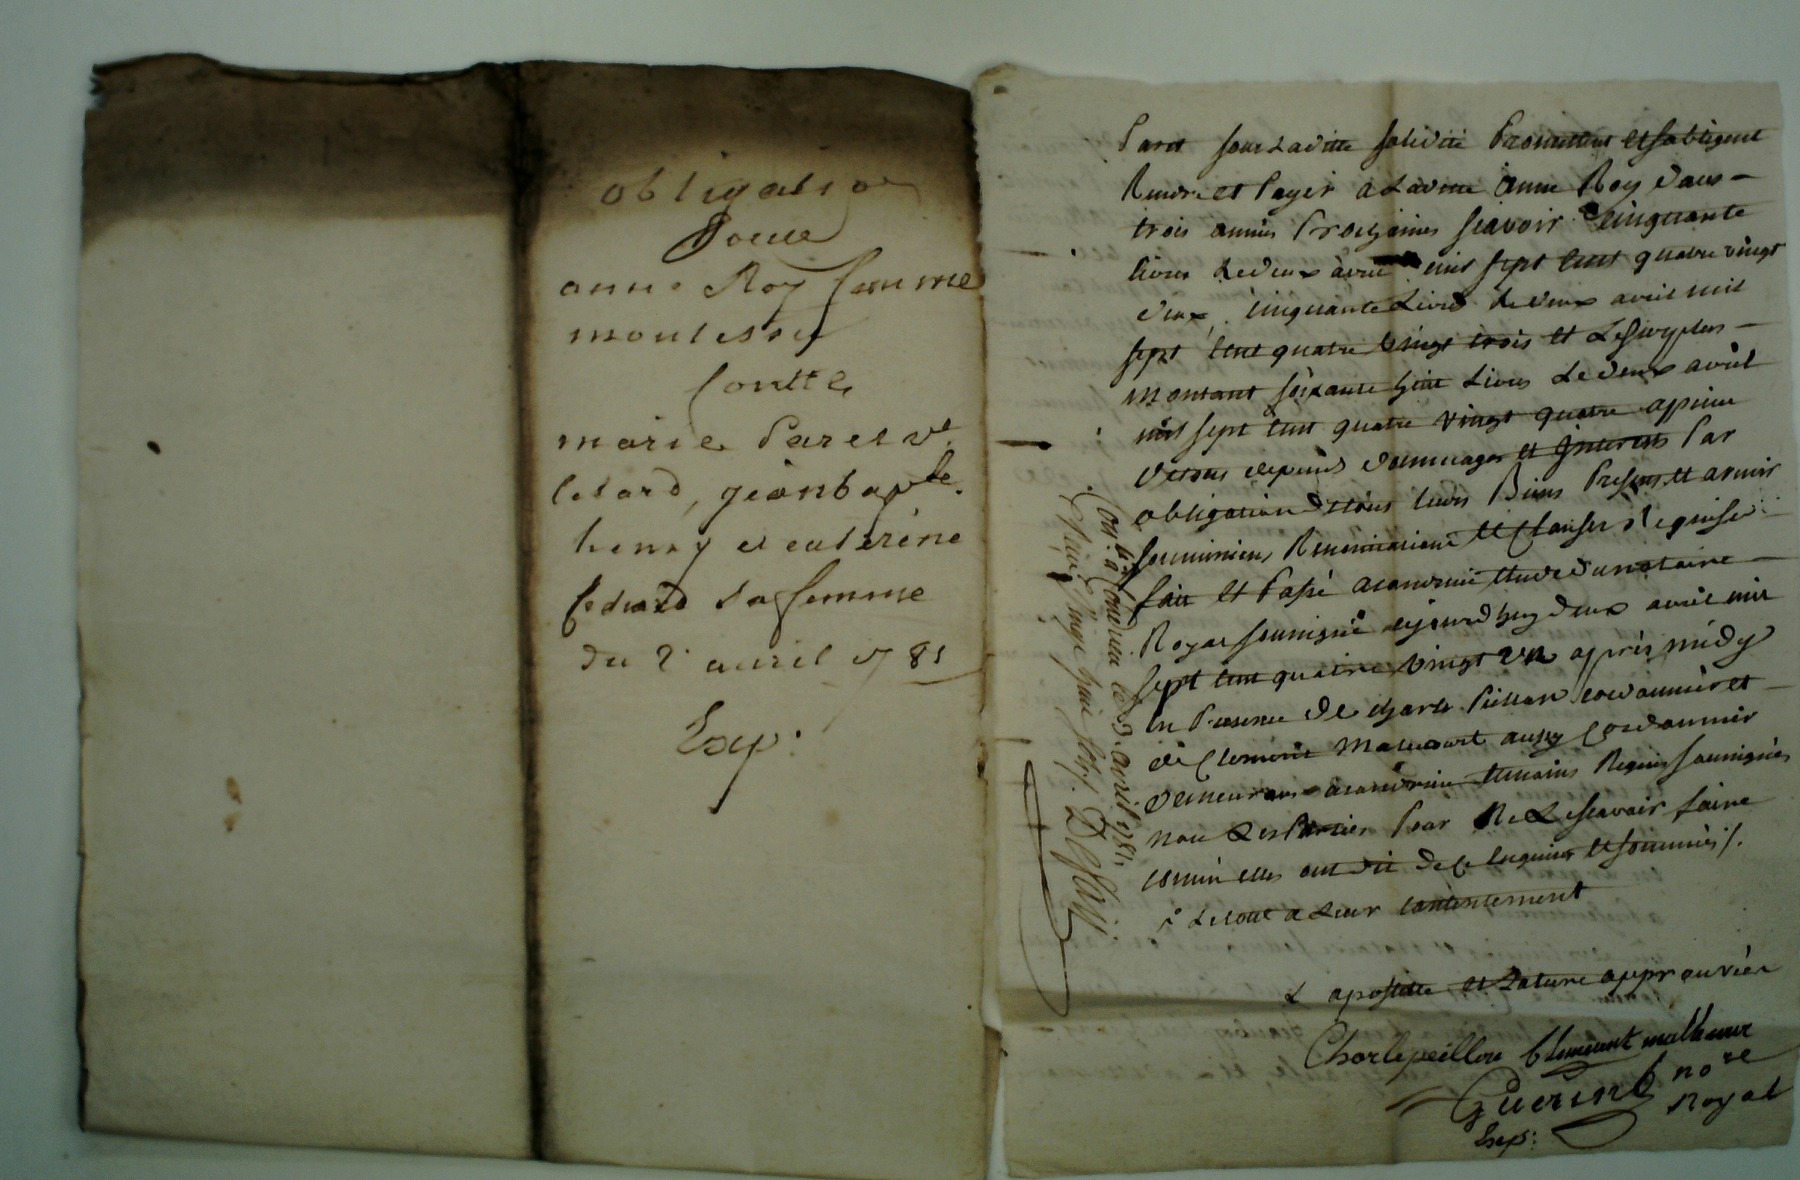 obligation
Pour
anne Roy femme
montessu
Contre
marie Paret ve
Cedard, jéanbaptte
henry et catérine
Cedard sa femme
du 2 avril 1781
Exp:
Paret sous Laditte solidité Promettent et sobligent
Rendre et Payer a Laditte anne Roy dans
trois années Prochaines scavoir Cinquante
livres Le deux avril mil sept cent quatre vingt
deux, Cinquante Livres le deux avril mil
sept cent quatre vingt trois et Le surplus
montant soixante huit Livres Le deux avril
mil sept cent quatre vingt quatre apeine
de tous depends dommages et Interests Par
obligation de tous leurs Biens Presens et avenir
soumissions Renonciations et Clauses Requises
fait et Passé acondrieu Etude du notaire
Royal soussigné aujourdhuy deux avril mil
sept cent quatre vingt un après midy
En Presence de charle Peillon cordonnier et
de Clement aussy Cordonnier
demeurans acondrieu temoins Requis soussignés
non Les Parties Pour Ne Le scavoir faire
comm'elles ont dit de ce Enquises et sommées /.
Le tout a Leur contentement
L apostille et Rature approuvées
Charle peillon Clement
Guerin nore
Royal
Exp:
Conlé a Condrieu le 3 avril 1781.